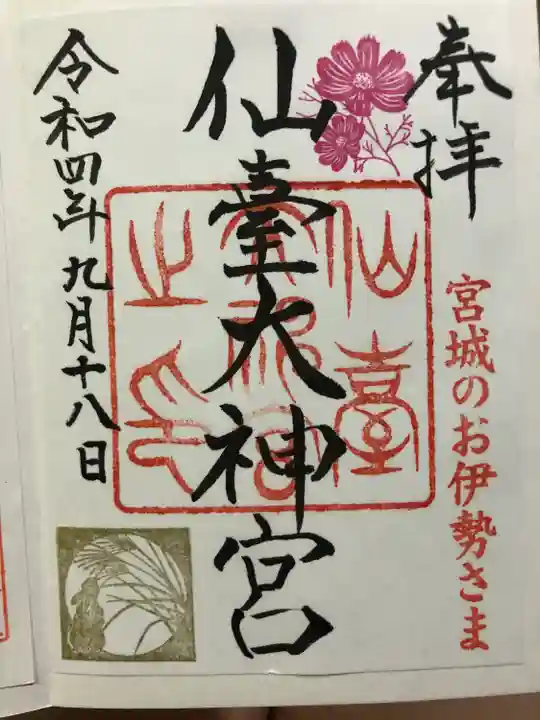 奉拝
宮城のお伊勢さま
仙臺大神宮
仙臺
大神宮
之印
令和四年九月十八日